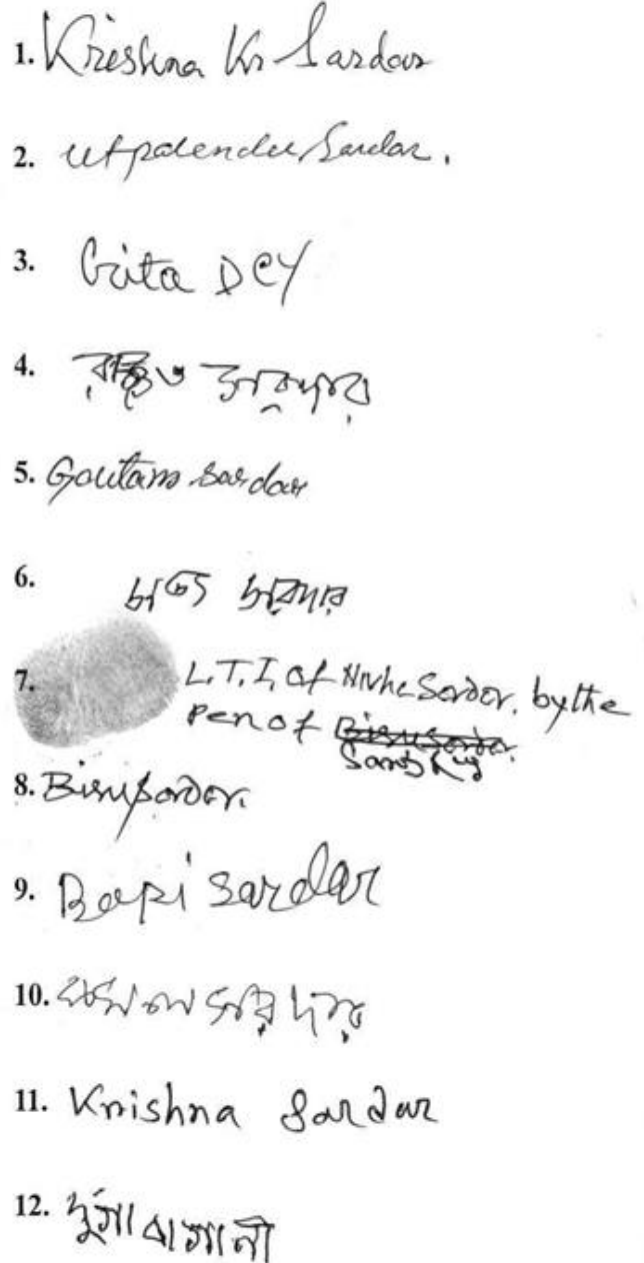 1. Krishna Kr Sardar
2. Utpalendu Sardar.
3. Gita DEY
4. রঞ্জিত সরদার
5. Goutam Sardar
6. সরদার
7. L.T.I. of Sardar. by the
Pen of Bisu Sardar.
8. Bisu Sardar.
9. Bapi Sardar
10. সরদার
11. Krishna Sardar
12. দুর্গা বাগানী